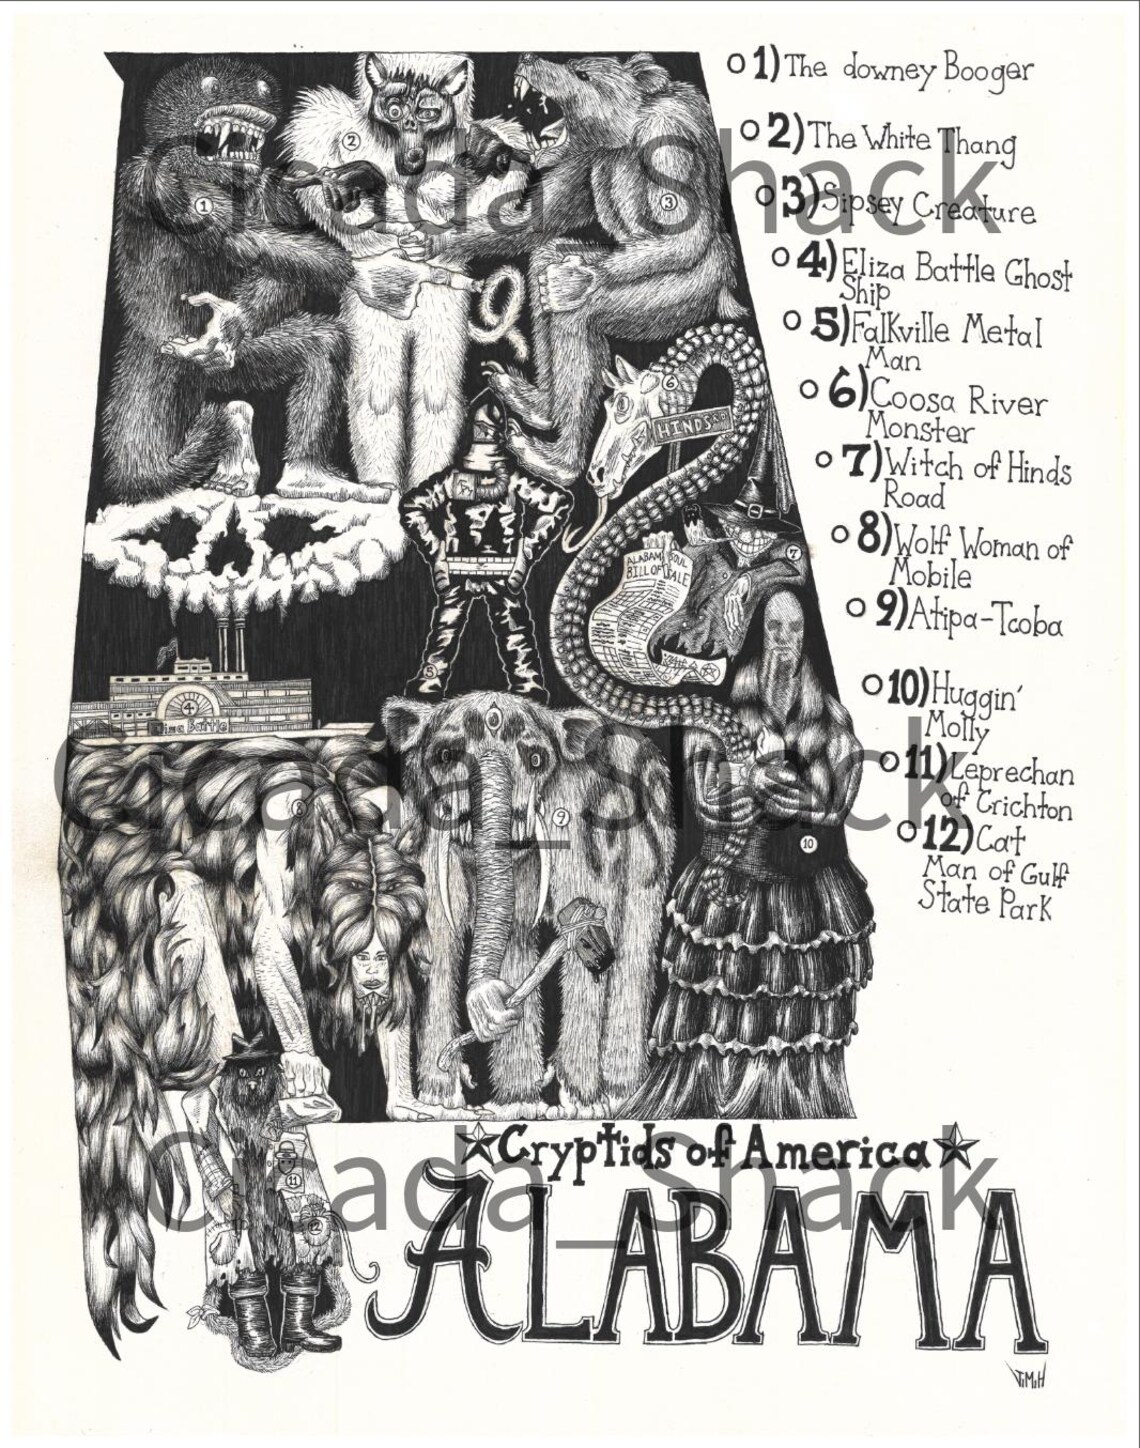 1) The downey Booger
2) The White Thang
3) Sipsey Creature
4) Eliza Battle Ghost
Ship
5) Falkville Metal
Man
6) Coosa River
Monster
7) Witch of Hinds
Road
8) Wolf Woman of
Mobile
9) Atipa-Tcoba
10) Huggin'
Molly
11) Leprechan
of Crichton
12) Cat
Man of Gulf
State Park
1
2
3
6
HINDS RD
7
ALABAMA SOUL
BILL OF SALE
5
4
Eliza Battle
8
9
10
11
12
Cicada_Shack
Cicada_Shack
Cicada_Shack
Cryptids of America
ALABAMA
JiMiH